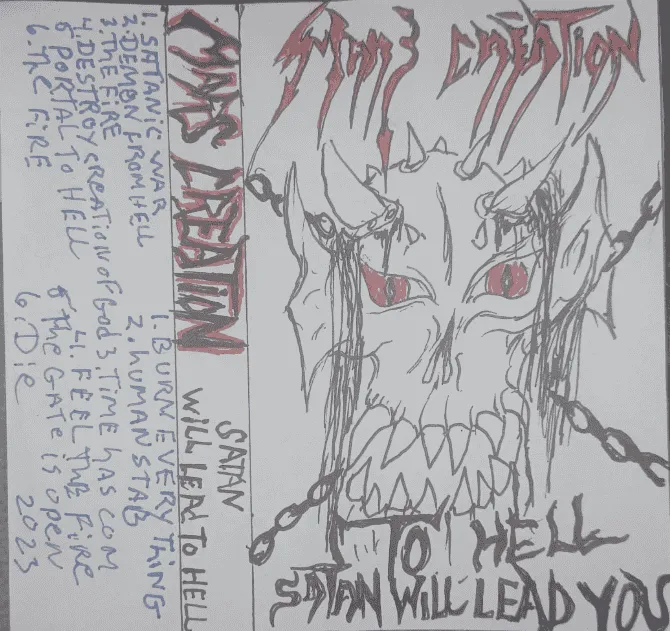 MANS CREATION
TO HELL
SATAN WILL LEAD YOU
MANS CREATION
SATAN
WILL LEAD TO HELL
1. SATANIC WAR
2. DEMON FROM HELL
3. THE FIRE
4. DESTROY CREATION OF GOD
5 PORTAL TO HELL
6. THE FIRE
1. BURN EVERY THING
2. HUMAN STAB
3. TIME HAS COM
4. FEEL THE FIRE
5 THE GATE IS OPEN
6. Die 2023